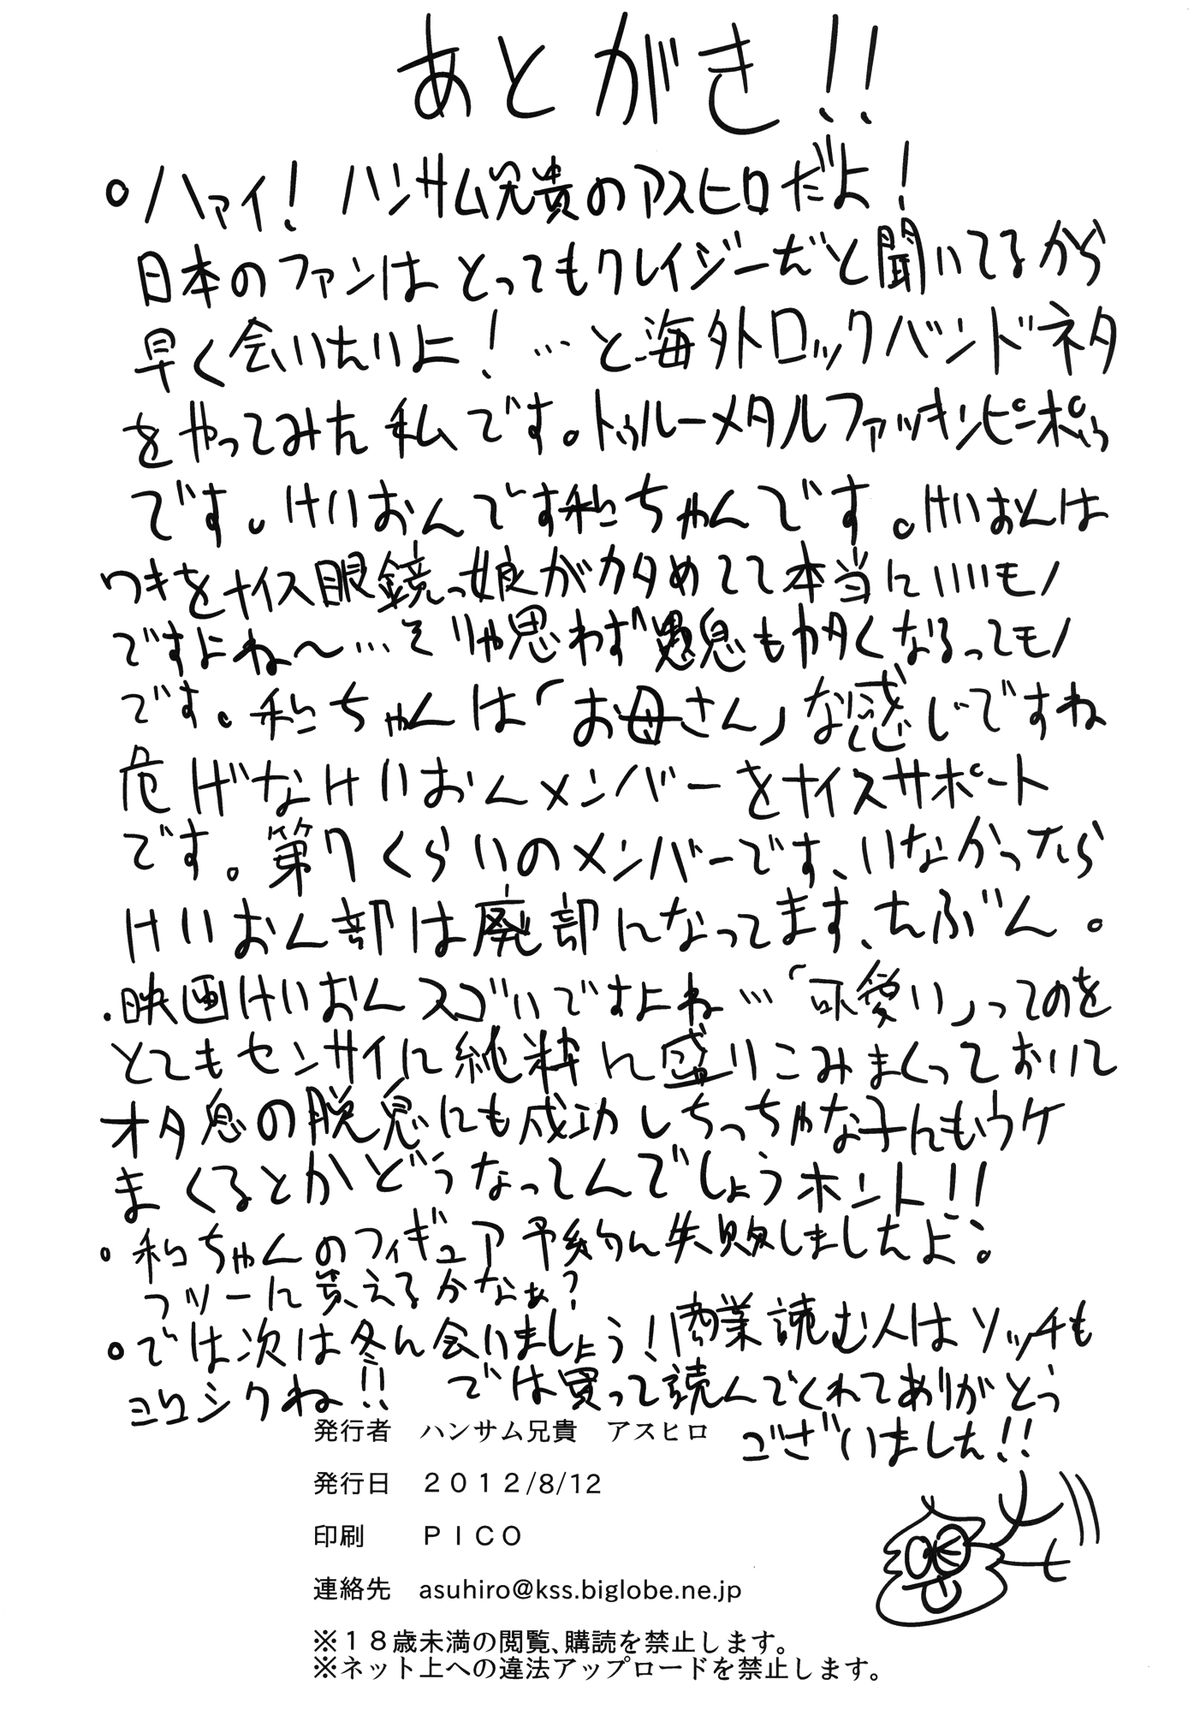 あとがき!!
ハァイ!ハンサム兄貴のアスヒロだよ!
日本のファンはとってもクレイジーだと聞いてるから
早く会いたいよ!…と海外ロックバンドネタ
をやってみた私です。トゥルーメタルファッキンピンポゥ
です。けいおんです和ちゃんです。けいおんは
ワキをナイス眼鏡っ娘がカタめてて本当にいいモノ
ですよね〜…そりゃ思わず愚息もカタくなるってモノ
です。和ちゃんは「お母さん」な感じですね
危げなけいおんメンバーをナイスサポート
です。第7くらいのメンバーです、いなかったら
けいおん部は廃部になってます、たぶん。
映画けいおんスゴいですよね…「可愛い」ってのを
とてもセンサイに純粋に盛りこみまくっておいて
オタ息の脱息にも成功しちっちゃな子にもウケ
まくるとかどうなってんでしょうホント!!
和ちゃんのフィギュア予約に失敗しましたよ。
フツーに買えるかなぁ?
では次は冬に会いましょう!商業読む人はソッチも
ヨロシクね!! では買って読んでくれてありがとう
ございました!!
発行者 ハンサム兄貴 アスヒロ
発行日 2012/8/12
印刷 PICO
連絡先 asuhiro@kss.biglobe.ne.jp
※18歳未満の閲覧、購読を禁止します。
※ネット上への違法アップロードを禁止します。